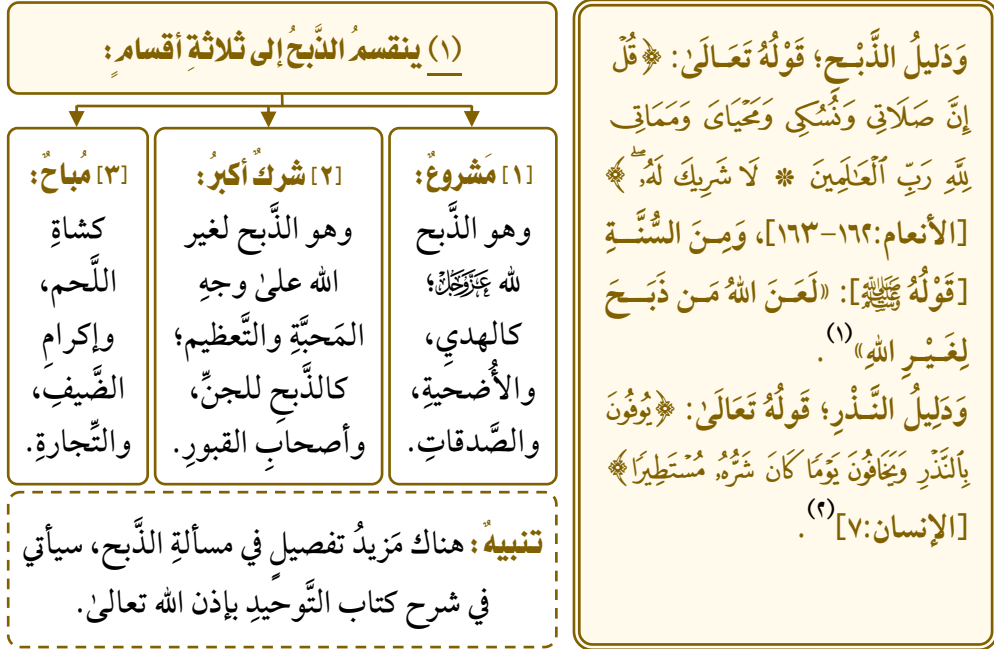 وَدَليلُ الذَّبْـحِ؛ قَوْلُهُ تَعَـالَىٰ: ﴿قُلْ
إِنَّ صَلَاتِي وَنُسُكِي وَمَحْيَايَ وَمَمَاتِي
لِلَّهِ رَبِّ ٱلْعَٰلَمِينَ * لَا شَرِيكَ لَهُۥۖ﴾
[الأنعام:١٦٢–١٦٣]، وَمِـنَ السُّنَّــةِ
[قَوْلُهُ ﷺ]: «لَعَـنَ اللهُ مَـن ذَبَــحَ
لِغَـيْـرِ اللهِ»(١).
وَدَلِيلُ النَّـذْرِ؛ قَولُهُ تَعَالَىٰ: ﴿يُوفُونَ
بِٱلنَّذْرِ وَيَخَافُونَ يَوْمًا كَانَ شَرُّهُۥ مُسْتَطِيرًا﴾
[الإنسان:٧](٢).
(١) ينقسمُ الذَّبحُ إلى ثلاثةِ أقسامٍ:
[١] مَشروعٌ:
وهو الذَّبح
لله عَزَّوَجَلَّ؛
كالهديِ،
والأُضحيةِ،
والصَّدقاتِ.
[٢] شركٌ أكبرُ:
وهو الذَّبح لغير
الله علىٰ وجهِ
المَحبَّةِ والتَّعظيم؛
كالذَّبحِ للجنِّ،
وأصحابِ القبورِ.
[٣] مُباحٌ:
كشاةِ
اللَّحم،
وإكرامِ
الضَّيفِ،
والتِّجارةِ.
تنبيهٌ: هناك مَزيدُ تفصيلٍ في مسألةِ الذَّبح، سيأتي
في شرح كتاب التَّوحيدِ بإذن الله تعالىٰ.